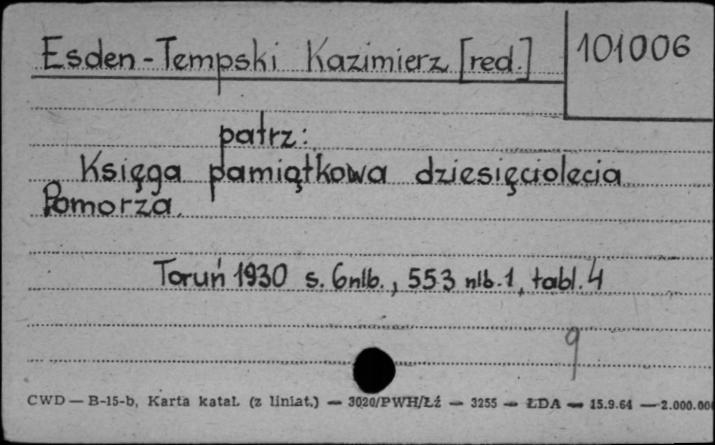 Esden-Tempski Kazimierz [red.] 101006
patrz:
Księga pamiątkowa dziesięciolecia
Pomorza.
Toruń 1930 s. 6nlb., 553 nlb. 1, tabl. 4
9
CWD — B-15-b, Karta katal. (z liniat.) — 3020/PWH/Łź — 3255 — ŁDA — 15.9.64 — 2.000.00